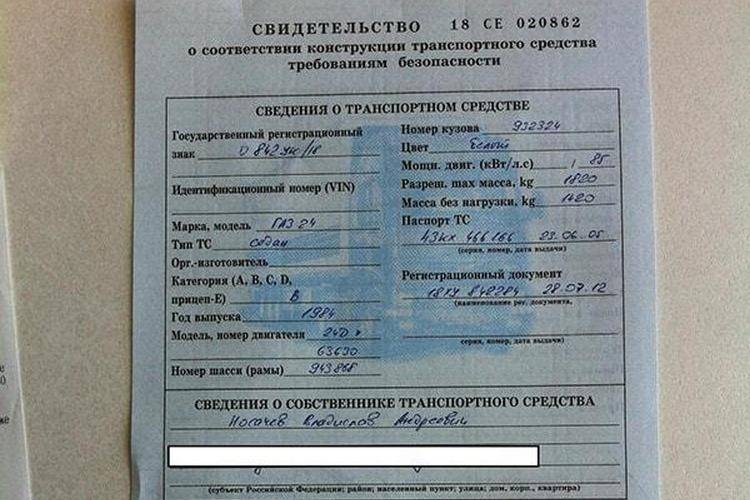 СВИДЕТЕЛЬСТВО 18 СЕ 020862
о соответствии конструкции транспортного средства
требованиям безопасности
СВЕДЕНИЯ О ТРАНСПОРТНОМ СРЕДСТВЕ
Государственный регистрационный
знак О 842 УК/18
Идентификационный номер (VIN)
Марка, модель ГАЗ 24
Тип ТС седан
Орг.-изготовитель
Категория (A, B, C, D,
прицеп-E) В
Год выпуска 1984
Модель, номер двигателя 24Д
63630
Номер шасси (рамы) 943868
Номер кузова 932324
Цвет белый
Мощн. двиг. (кВт/л.с) / 85
Разреш. max масса, kg 1820
Масса без нагрузки, kg 1420
Паспорт ТС
43КХ 466166 23.06.05
(серия, номер, дата выдачи)
Регистрационный документ
18ТУ 842284 28.07.12
(наименование рег. документа,
серия, номер, дата выдачи)
СВЕДЕНИЯ О СОБСТВЕННИКЕ ТРАНСПОРТНОГО СРЕДСТВА
Носачев Владислав Андреевич
(субъект Российской Федерации; район; населенный пункт; улица; дом, корп., квартира)